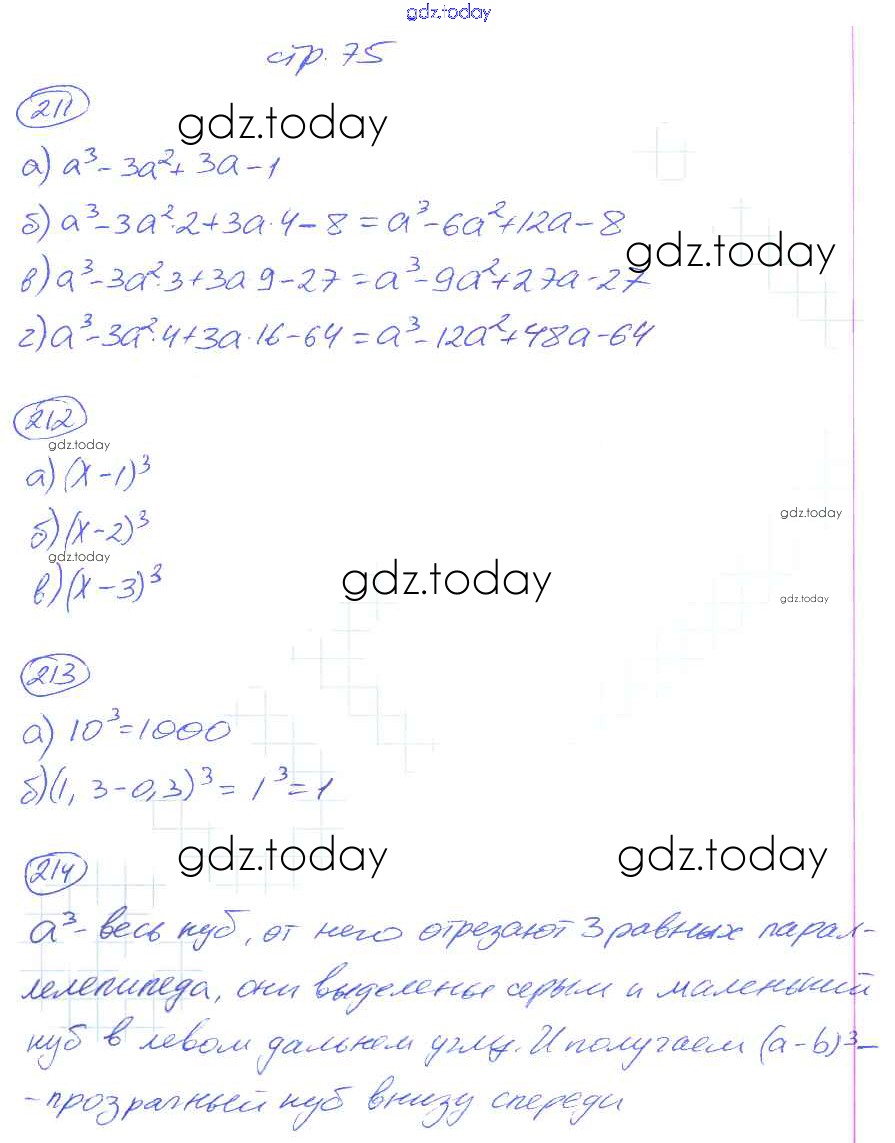 gdz.today
стр. 75
211
gdz.today
а) a³-3a²+3a-1
б) a³-3a²·2+3a·4-8=a³-6a²+12a-8
gdz.today
в) a³-3a²·3+3a 9-27=a³-9a²+27a-27
г) a³-3a²·4+3a·16-64=a³-12a²+48a-64
212
gdz.today
а) (x-1)³
gdz.today
б) (x-2)³
gdz.today
gdz.today
в) (x-3)³
gdz.today
213
а) 10³=1000
б) (1,3-0,3)³=1³=1
gdz.today gdz.today
214
a³- весь куб, от него отрезают 3 равных парал-
лелепипеда, они выделены серым и маленький
куб в левом дальнем углу. И получаем (a-b)³-
-прозрачный куб внизу спереди